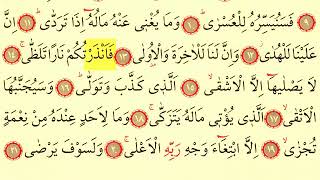 ﴿٩﴾ فَسَنُيَسِّرُهُ لِلْعُسْرٰىۜ ﴿١٠﴾ وَمَا يُغْنٖى عَنْهُ مَالُهُٓ اِذَا تَرَدّٰىۜ ﴿١١﴾ اِنَّ
عَلَيْنَا لَلْهُدٰىۘ ﴿١٢﴾ وَاِنَّ لَنَا لَلْاٰخِرَةَ وَالْاُو۫لٰى ﴿١٣﴾ فَاَنْذَرْتُكُمْ نَارًا تَلَظّٰىۚ ﴿١٤﴾
لَا يَصْلٰيهَٓا اِلَّا الْاَشْقٰىۙ ﴿١٥﴾ اَلَّذٖى كَذَّبَ وَتَوَلّٰىۜ ﴿١٦﴾ وَسَيُجَنَّبُهَا
الْاَتْقٰىۙ ﴿١٧﴾ اَلَّذٖى يُؤْتٖى مَالَهُ يَتَزَكّٰىۚ ﴿١٨﴾ وَمَا لِاَحَدٍ عِنْدَهُ مِنْ نِعْمَةٍ
تُجْزٰىۙ ﴿١٩﴾ اِلَّا ابْتِغَٓاءَ وَجْهِ رَبِّهِ الْاَعْلٰىۚ ﴿٢٠﴾ وَلَسَوْفَ يَرْضٰى ﴿٢١﴾